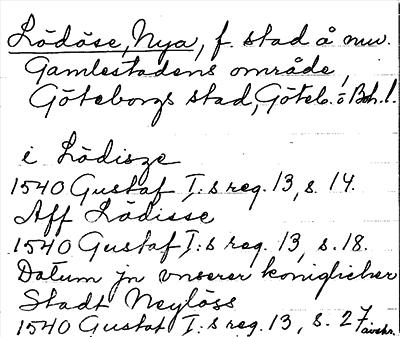 Lödöse, Nya, f. stad å nuv.
Gamlestadens område,
Göteborgs stad, Göteb. o. Boh. l.
i Lödisze
1540 Gustaf I:s reg. 13, s. 14.
Aff Lödisse
1540 Gustaf I:s reg. 13, s. 18.
Datum jn vnserer koniglicher
Stadt Neylöss
1540 Gustaf I:s reg. 13, s. 27 avskr.